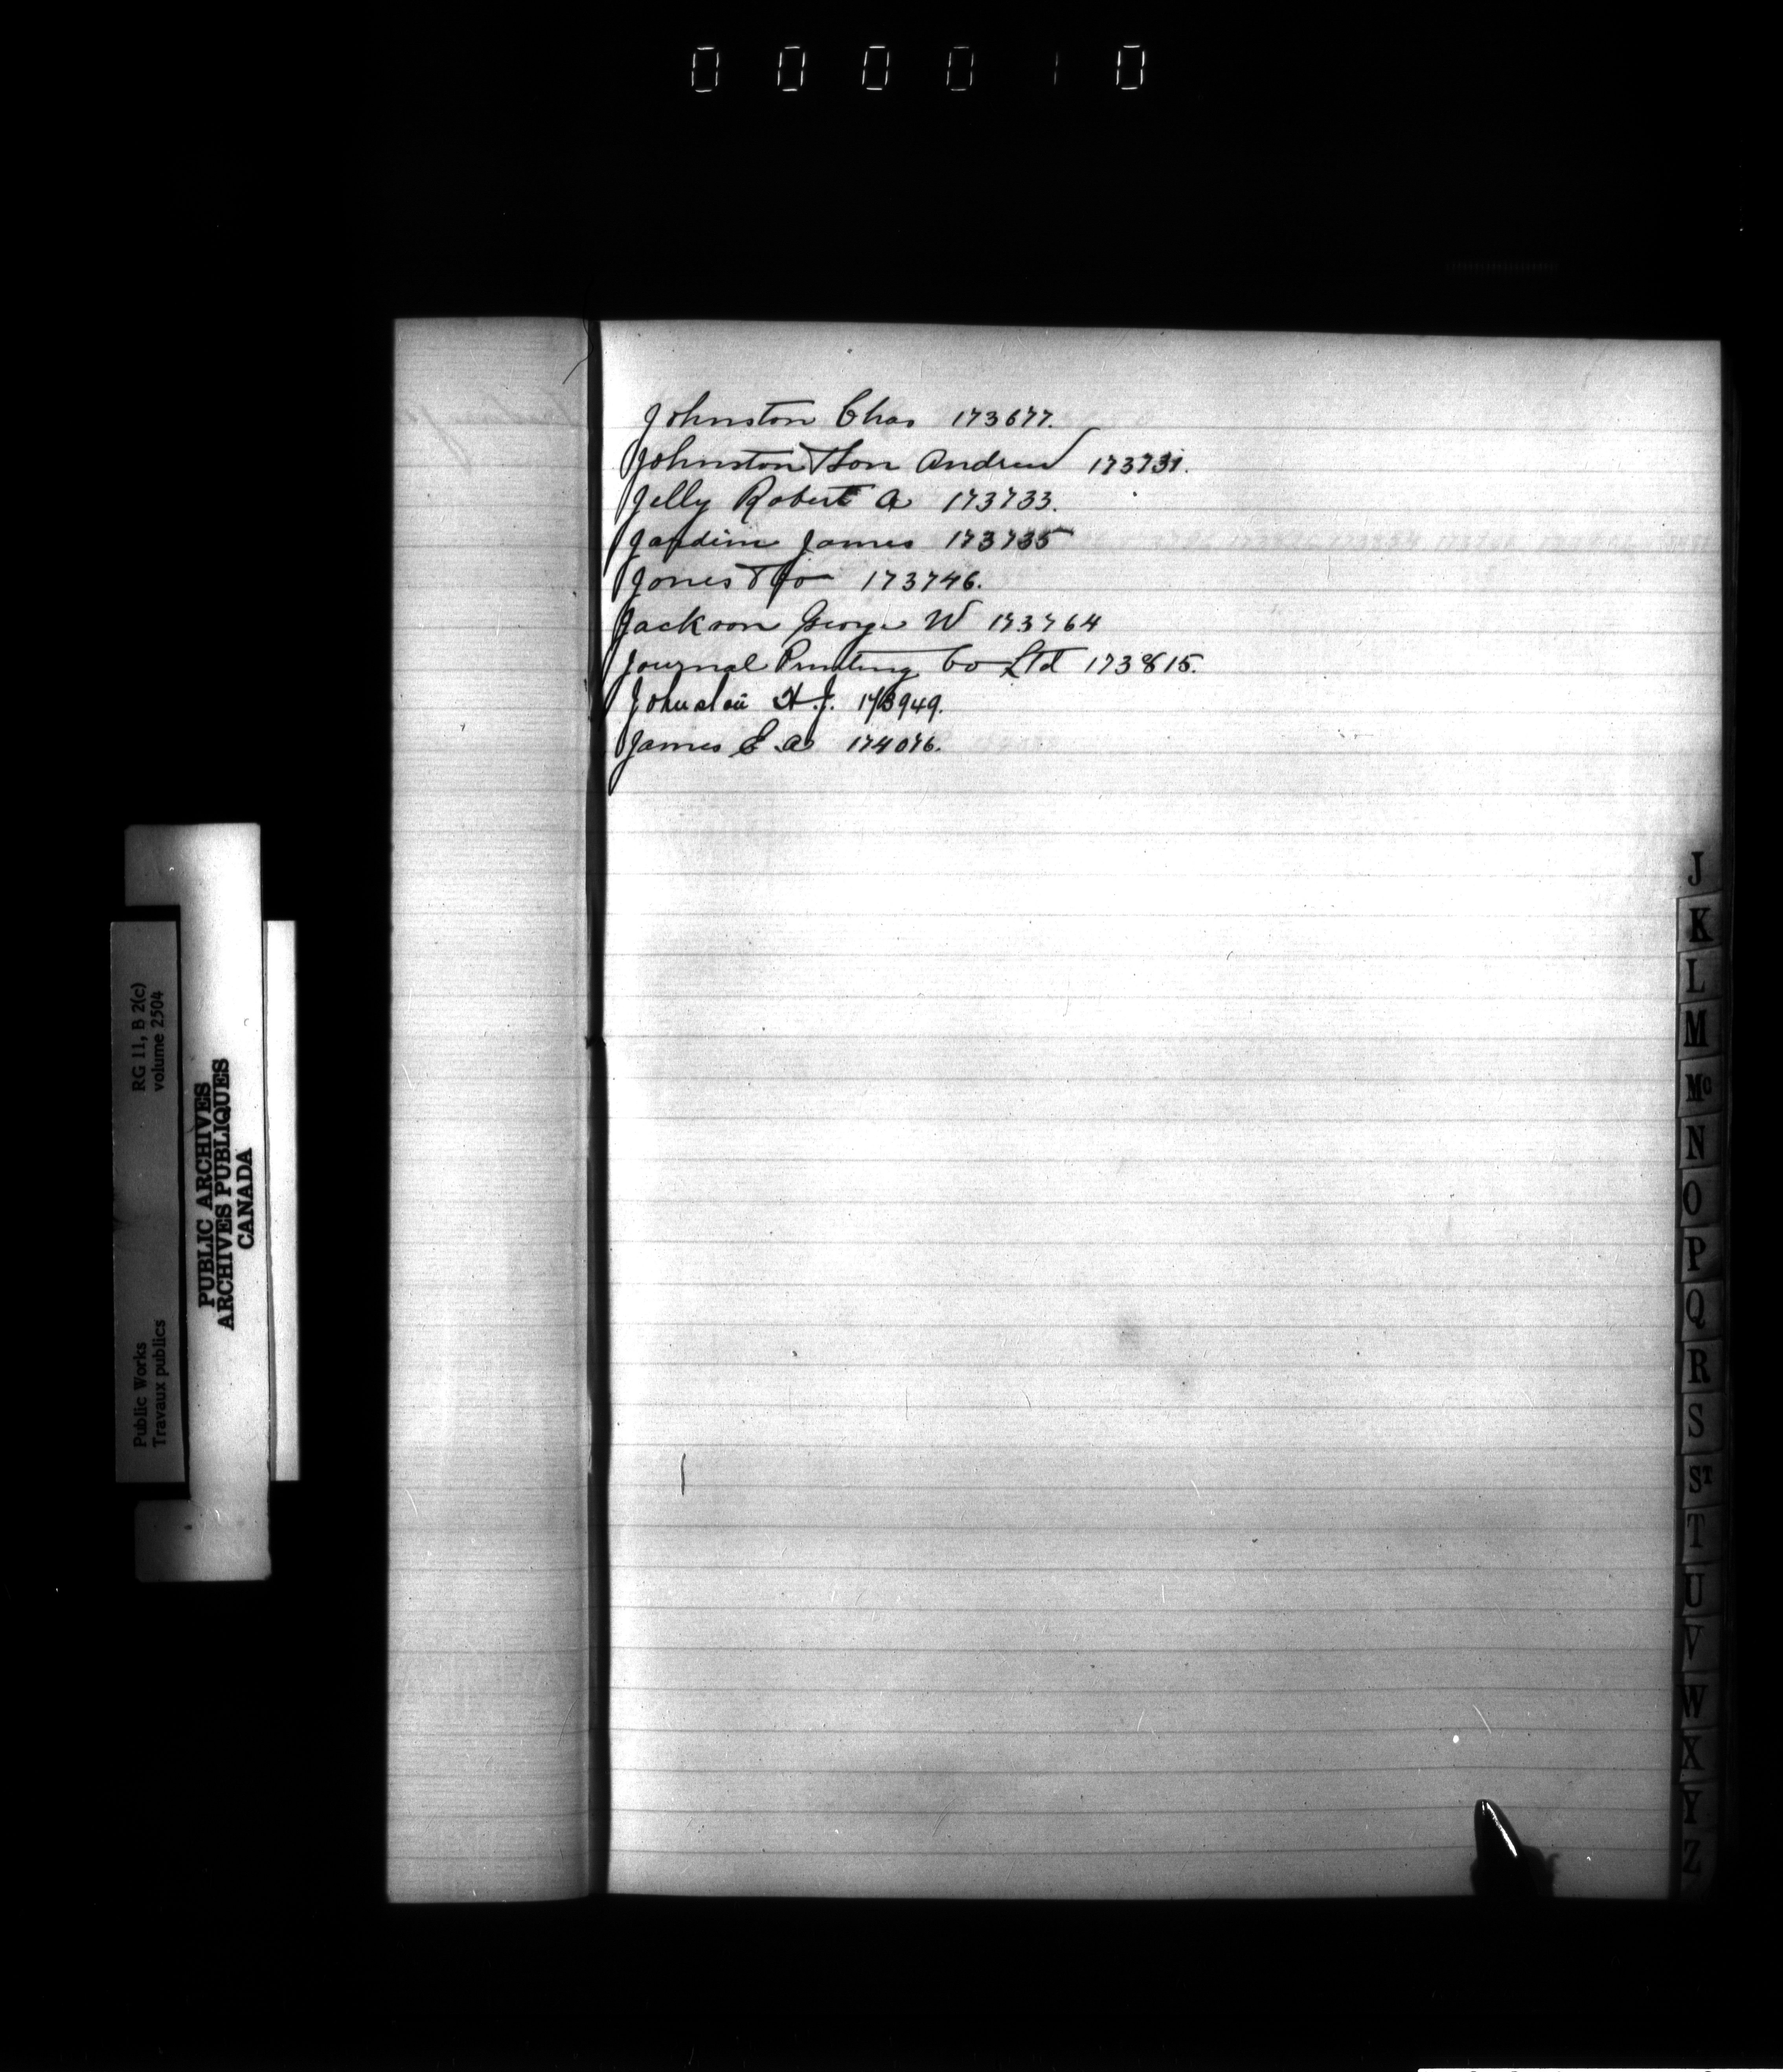 000010
Johnston Chas 173677.
Johnston Hon Andrew 173731.
Jelly Robert A 173733.
Jardine James 173735
Jones & Co 173746.
Jackson George W 173764
Journal Printing Co Ltd 173815.
Johnston H.J. 173949.
James E.A. 174076.
J
K
L
M
Mc
N
O
P
Q
R
S
ST
T
U
V
W
X
Y
Z
RG 11, B 2(c)
volume 2504
Public Works
Travaux publics
PUBLIC ARCHIVES
ARCHIVES PUBLIQUES
CANADA